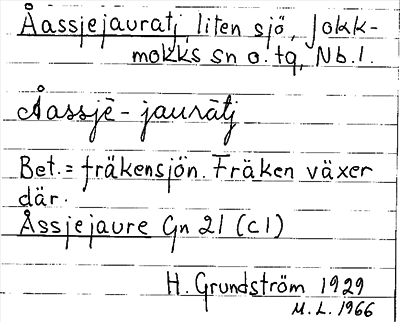 Åassjejauratj, liten sjö, Jokk-
mokks sn o. tg, Nb.l.
Åassjē-jaurātj
Bet. = fräkensjön. Fräken växer
där.
Åssjejaure Gn 21 (c1)
H. Grundström 1929
M. L. 1966